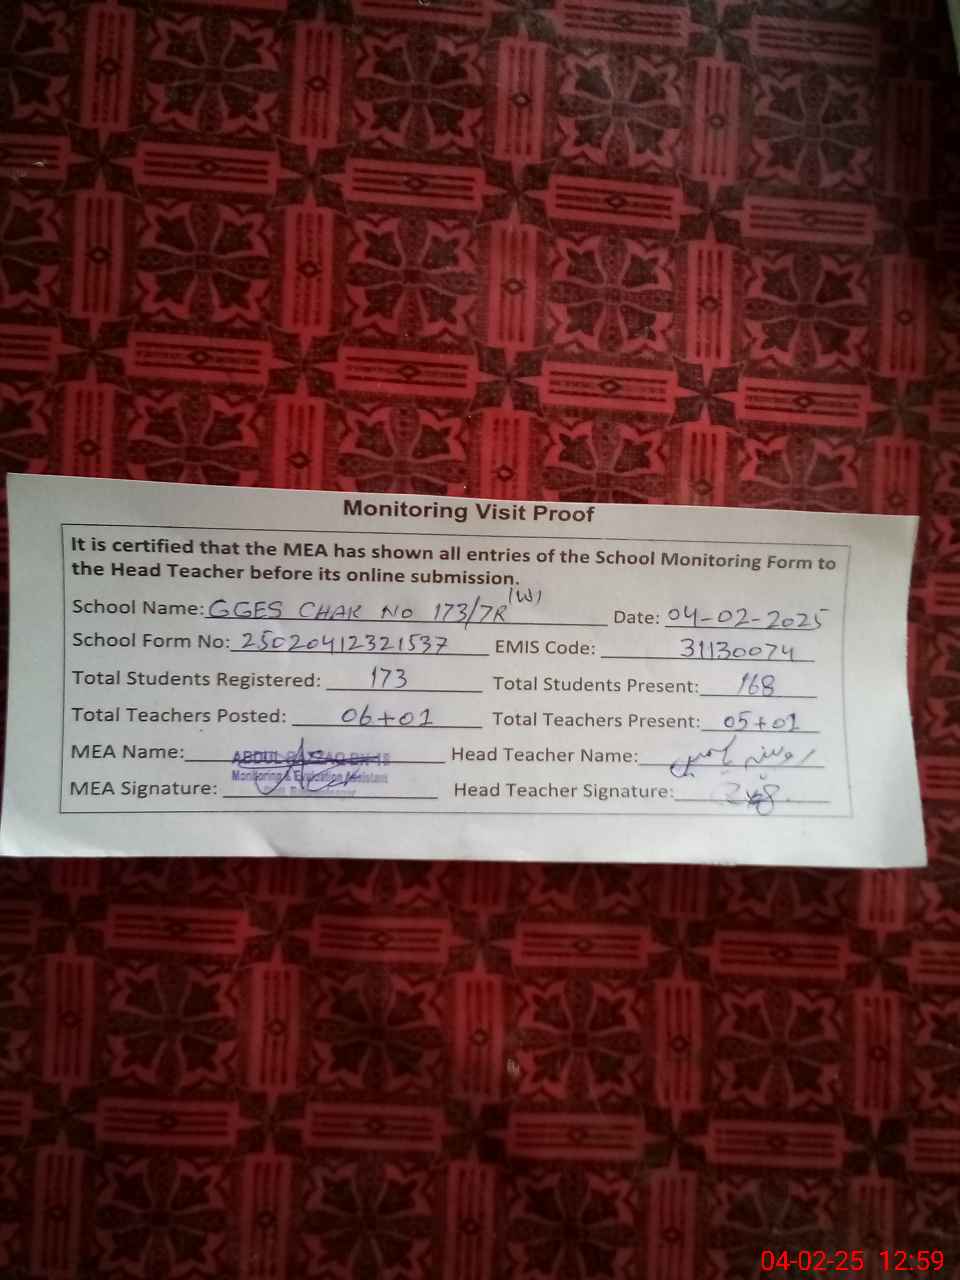 Monitoring Visit Proof
It is certified that the MEA has shown all entries of the School Monitoring Form to
the Head Teacher before its online submission.
School Name: GGES CHAK No 173/7R (W) Date: 04-02-2025
School Form No: 25020412321537 EMIS Code: 31130074
Total Students Registered: 173 Total Students Present: 168
Total Teachers Posted: 06+01 Total Teachers Present: 05+01
MEA Name: ABDUL RAZZAQ Head Teacher Name:
Monitoring & Evaluation Assistant
MEA Signature: Head Teacher Signature:
04-02-25 12:59